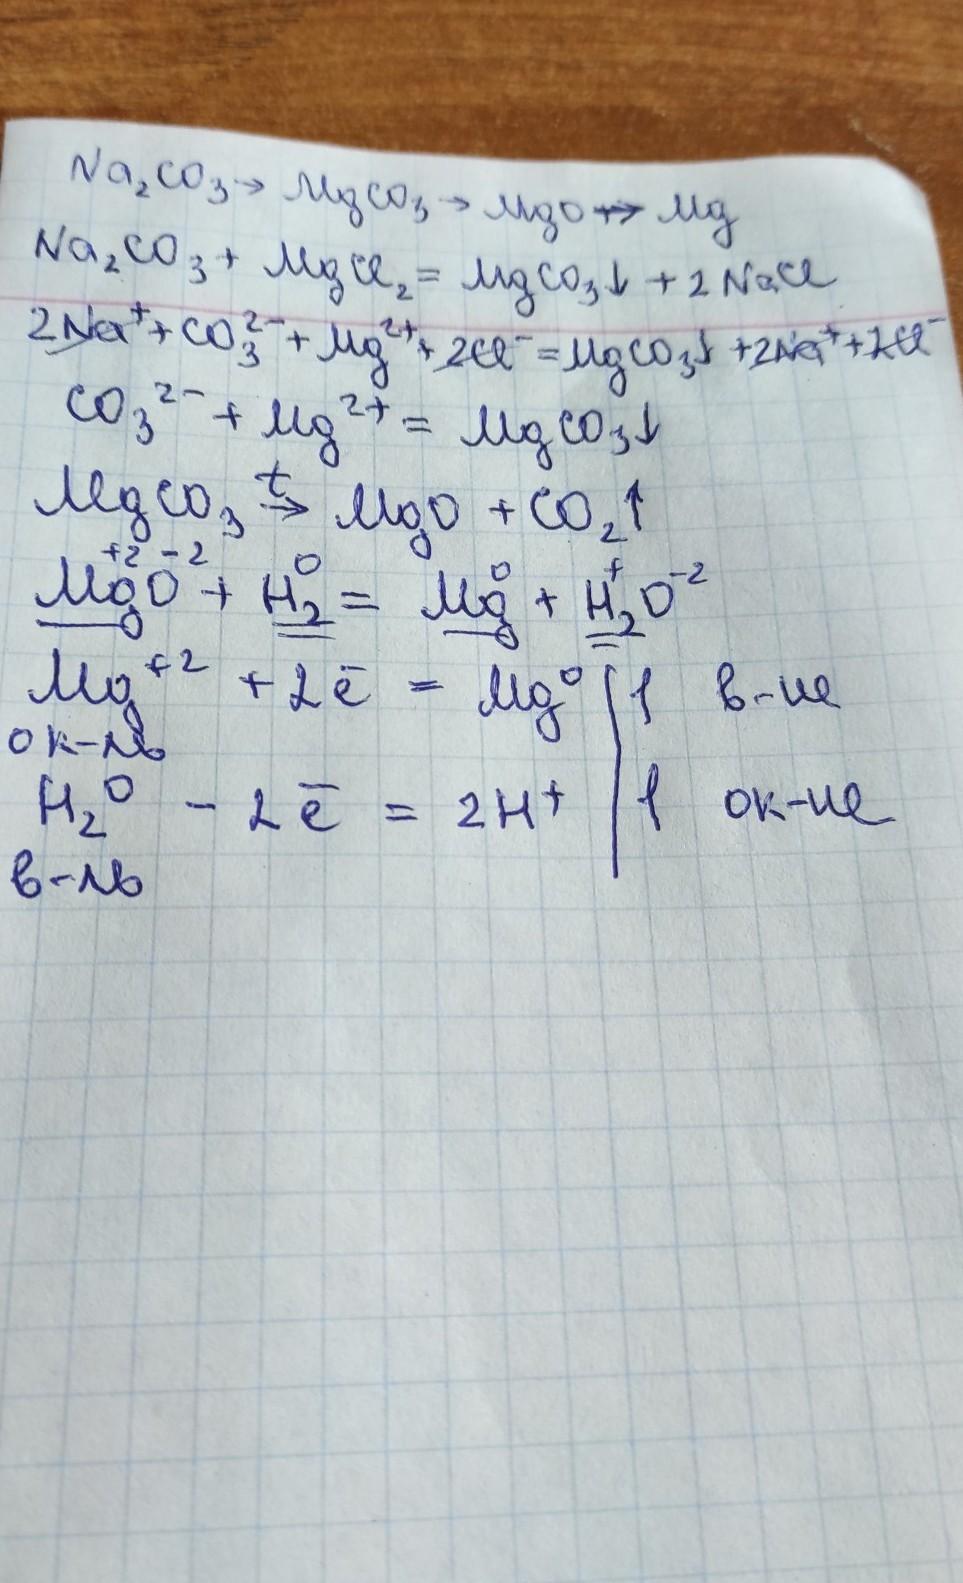 Na₂CO₃ → MgCO₃ → MgO → Mg
Na₂CO₃ + MgCl₂ = MgCO₃↓ + 2NaCl
2Na⁺ + CO₃²⁻ + Mg²⁺ + 2Cl⁻ = MgCO₃↓ + 2Na⁺ + 2Cl⁻
CO₃²⁻ + Mg²⁺ = MgCO₃↓
MgCO₃ →ᵗ MgO + CO₂↑
Mg⁺²O⁻² + H₂⁰ = Mg⁰ + H₂⁺O⁻²
Mg⁺² + 2ē = Mg⁰ | 1 в-ие
ок-ль
H₂⁰ - 2ē = 2H⁺ | 1 ок-ие
в-ль